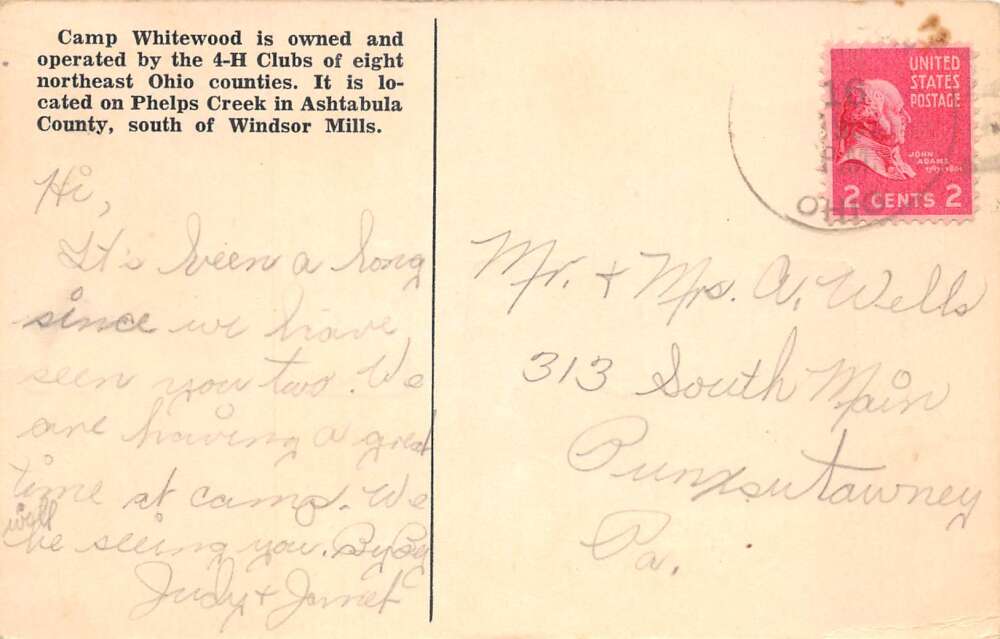 Camp Whitewood is owned and
operated by the 4-H Clubs of eight
northeast Ohio counties. It is lo-
cated on Phelps Creek in Ashtabula
County, south of Windsor Mills.
Hi,
It's been a long
since we have
seen you two. We
are having a great
time at camp. We
will
be seeing you. By By
Judy + Janet
UNITED
STATES
POSTAGE
JOHN
ADAMS
1797-1801
2 CENTS 2
16
OHIO
Mr. + Mrs. A. Wells
313 South Main
Punxsutawney
Pa.